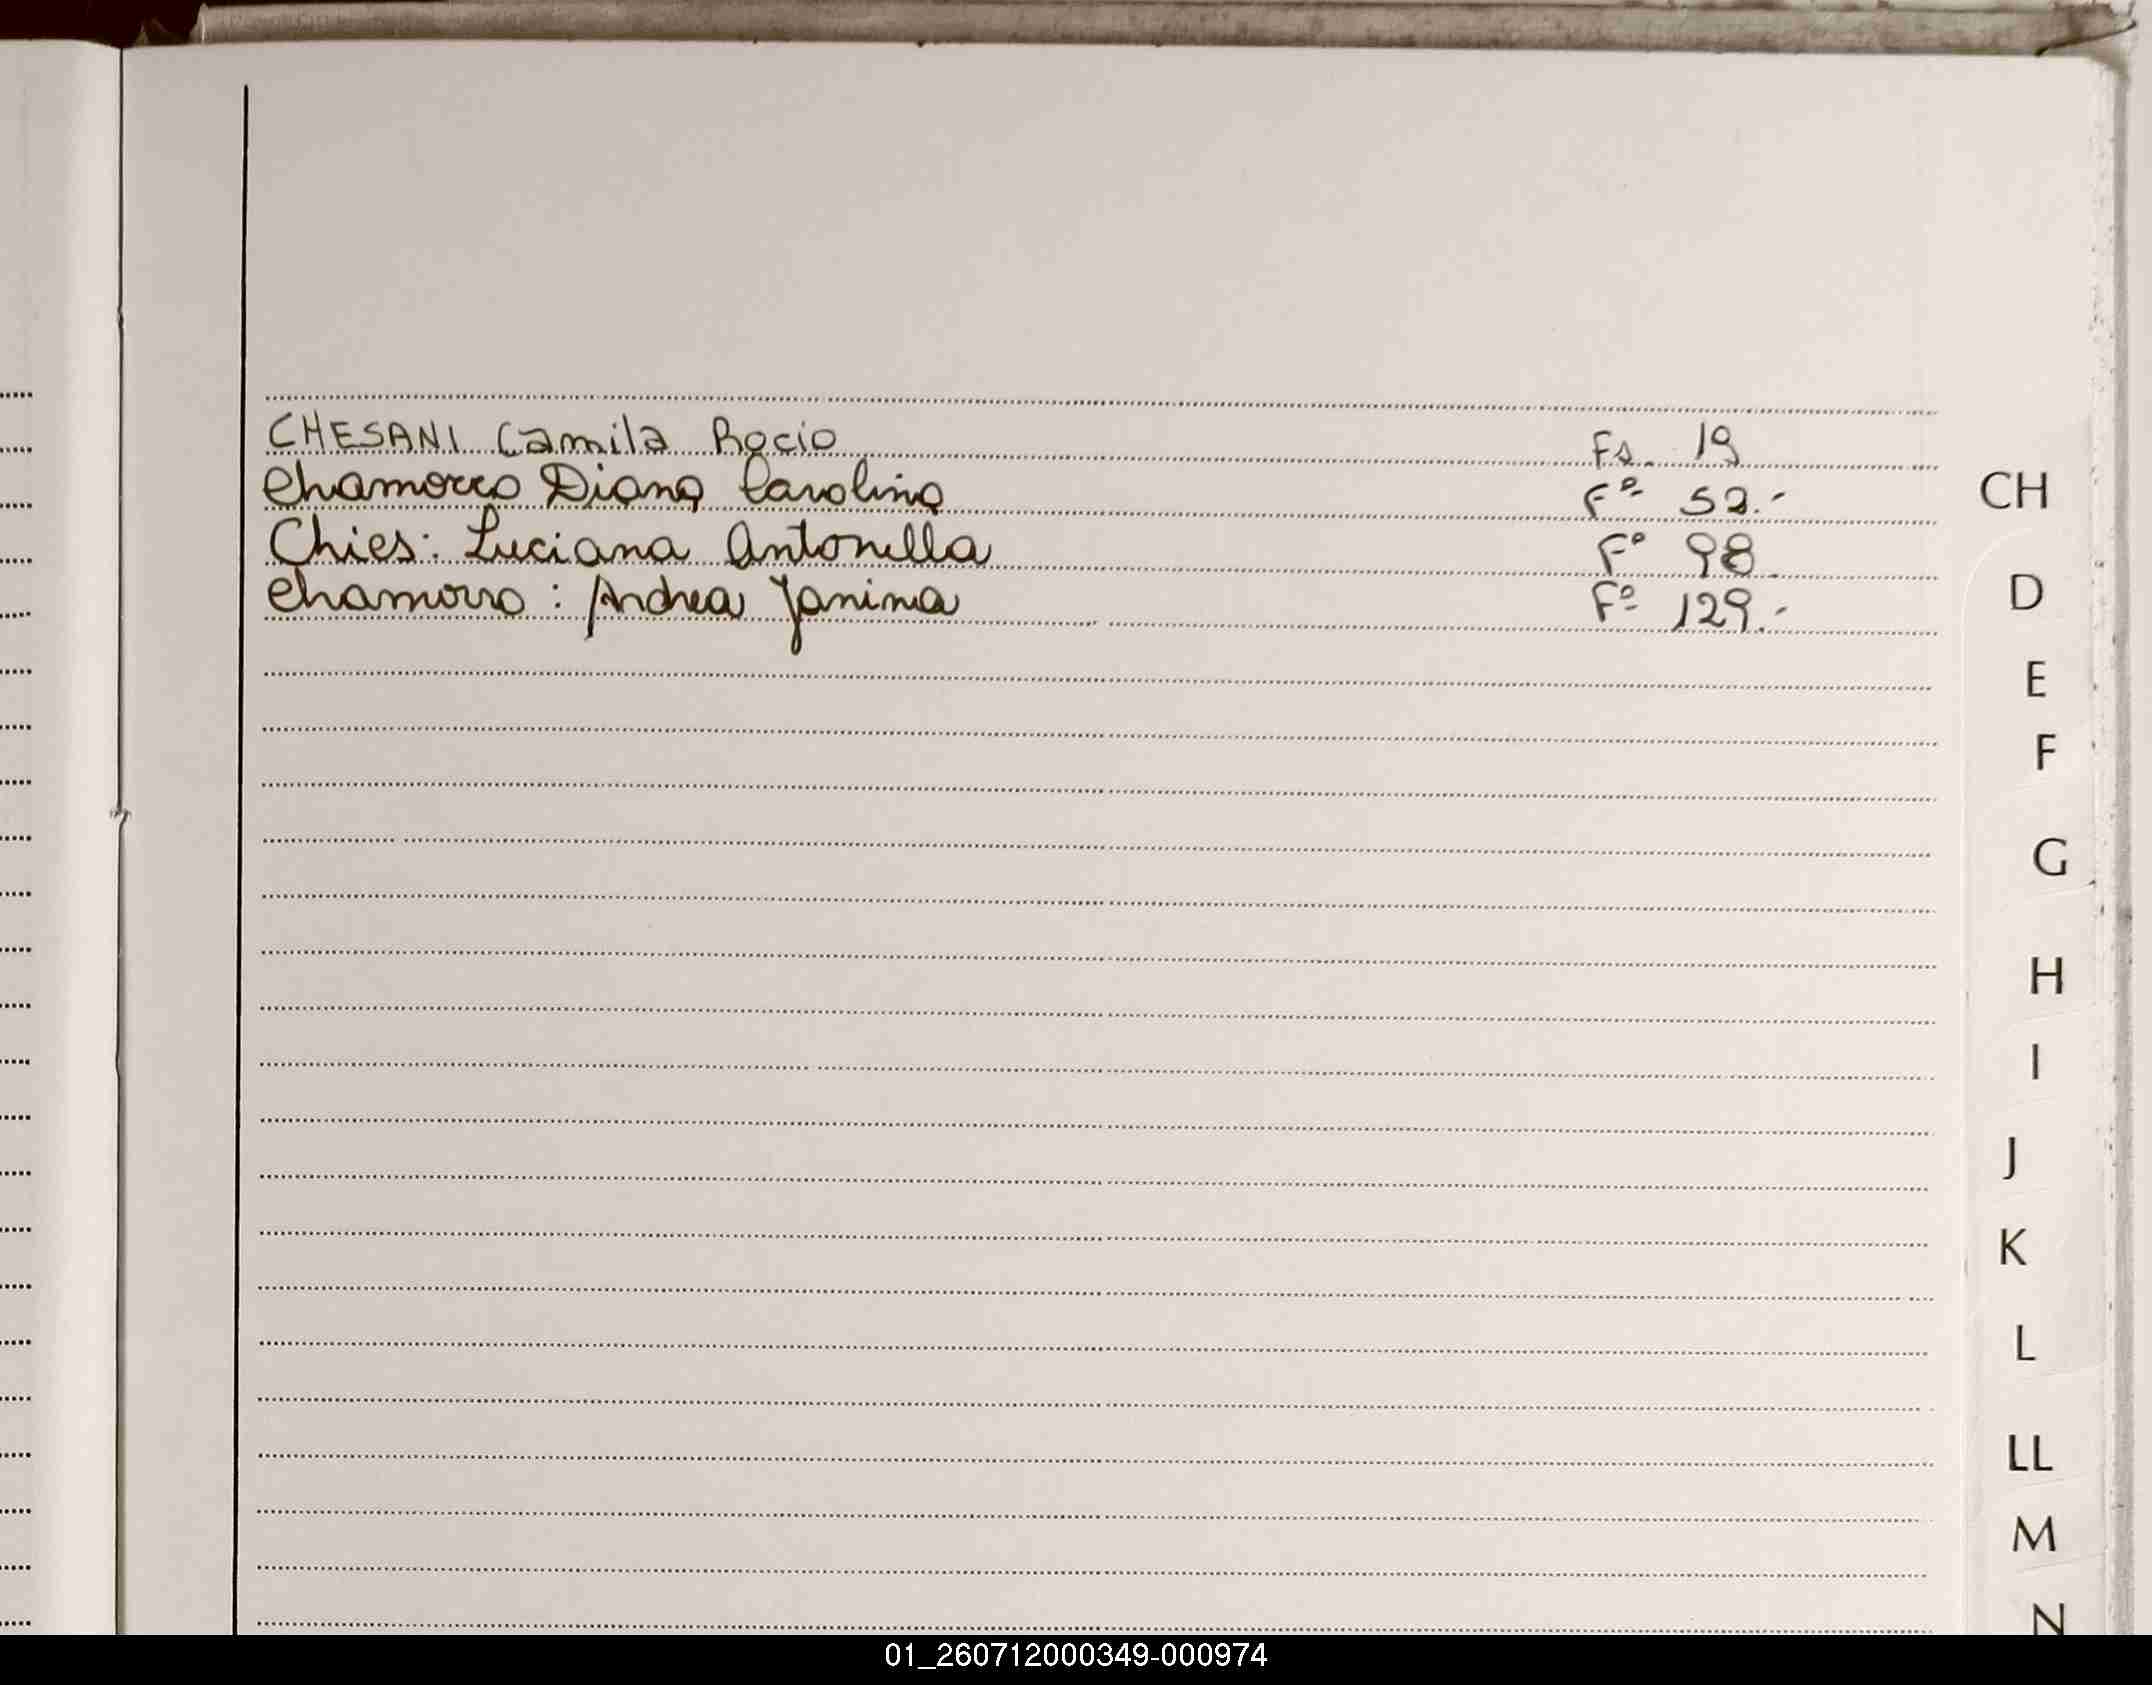 CHESANI Camila Rocio Fs. 19
Chamorro Diana Carolina Fº 52.-
Chies: Luciana Antonella Fº 98.
Chamorro: Andrea Yanina Fº 129.-
CH
D
E
F
G
H
I
J
K
L
LL
M
N
01_260712000349-000974